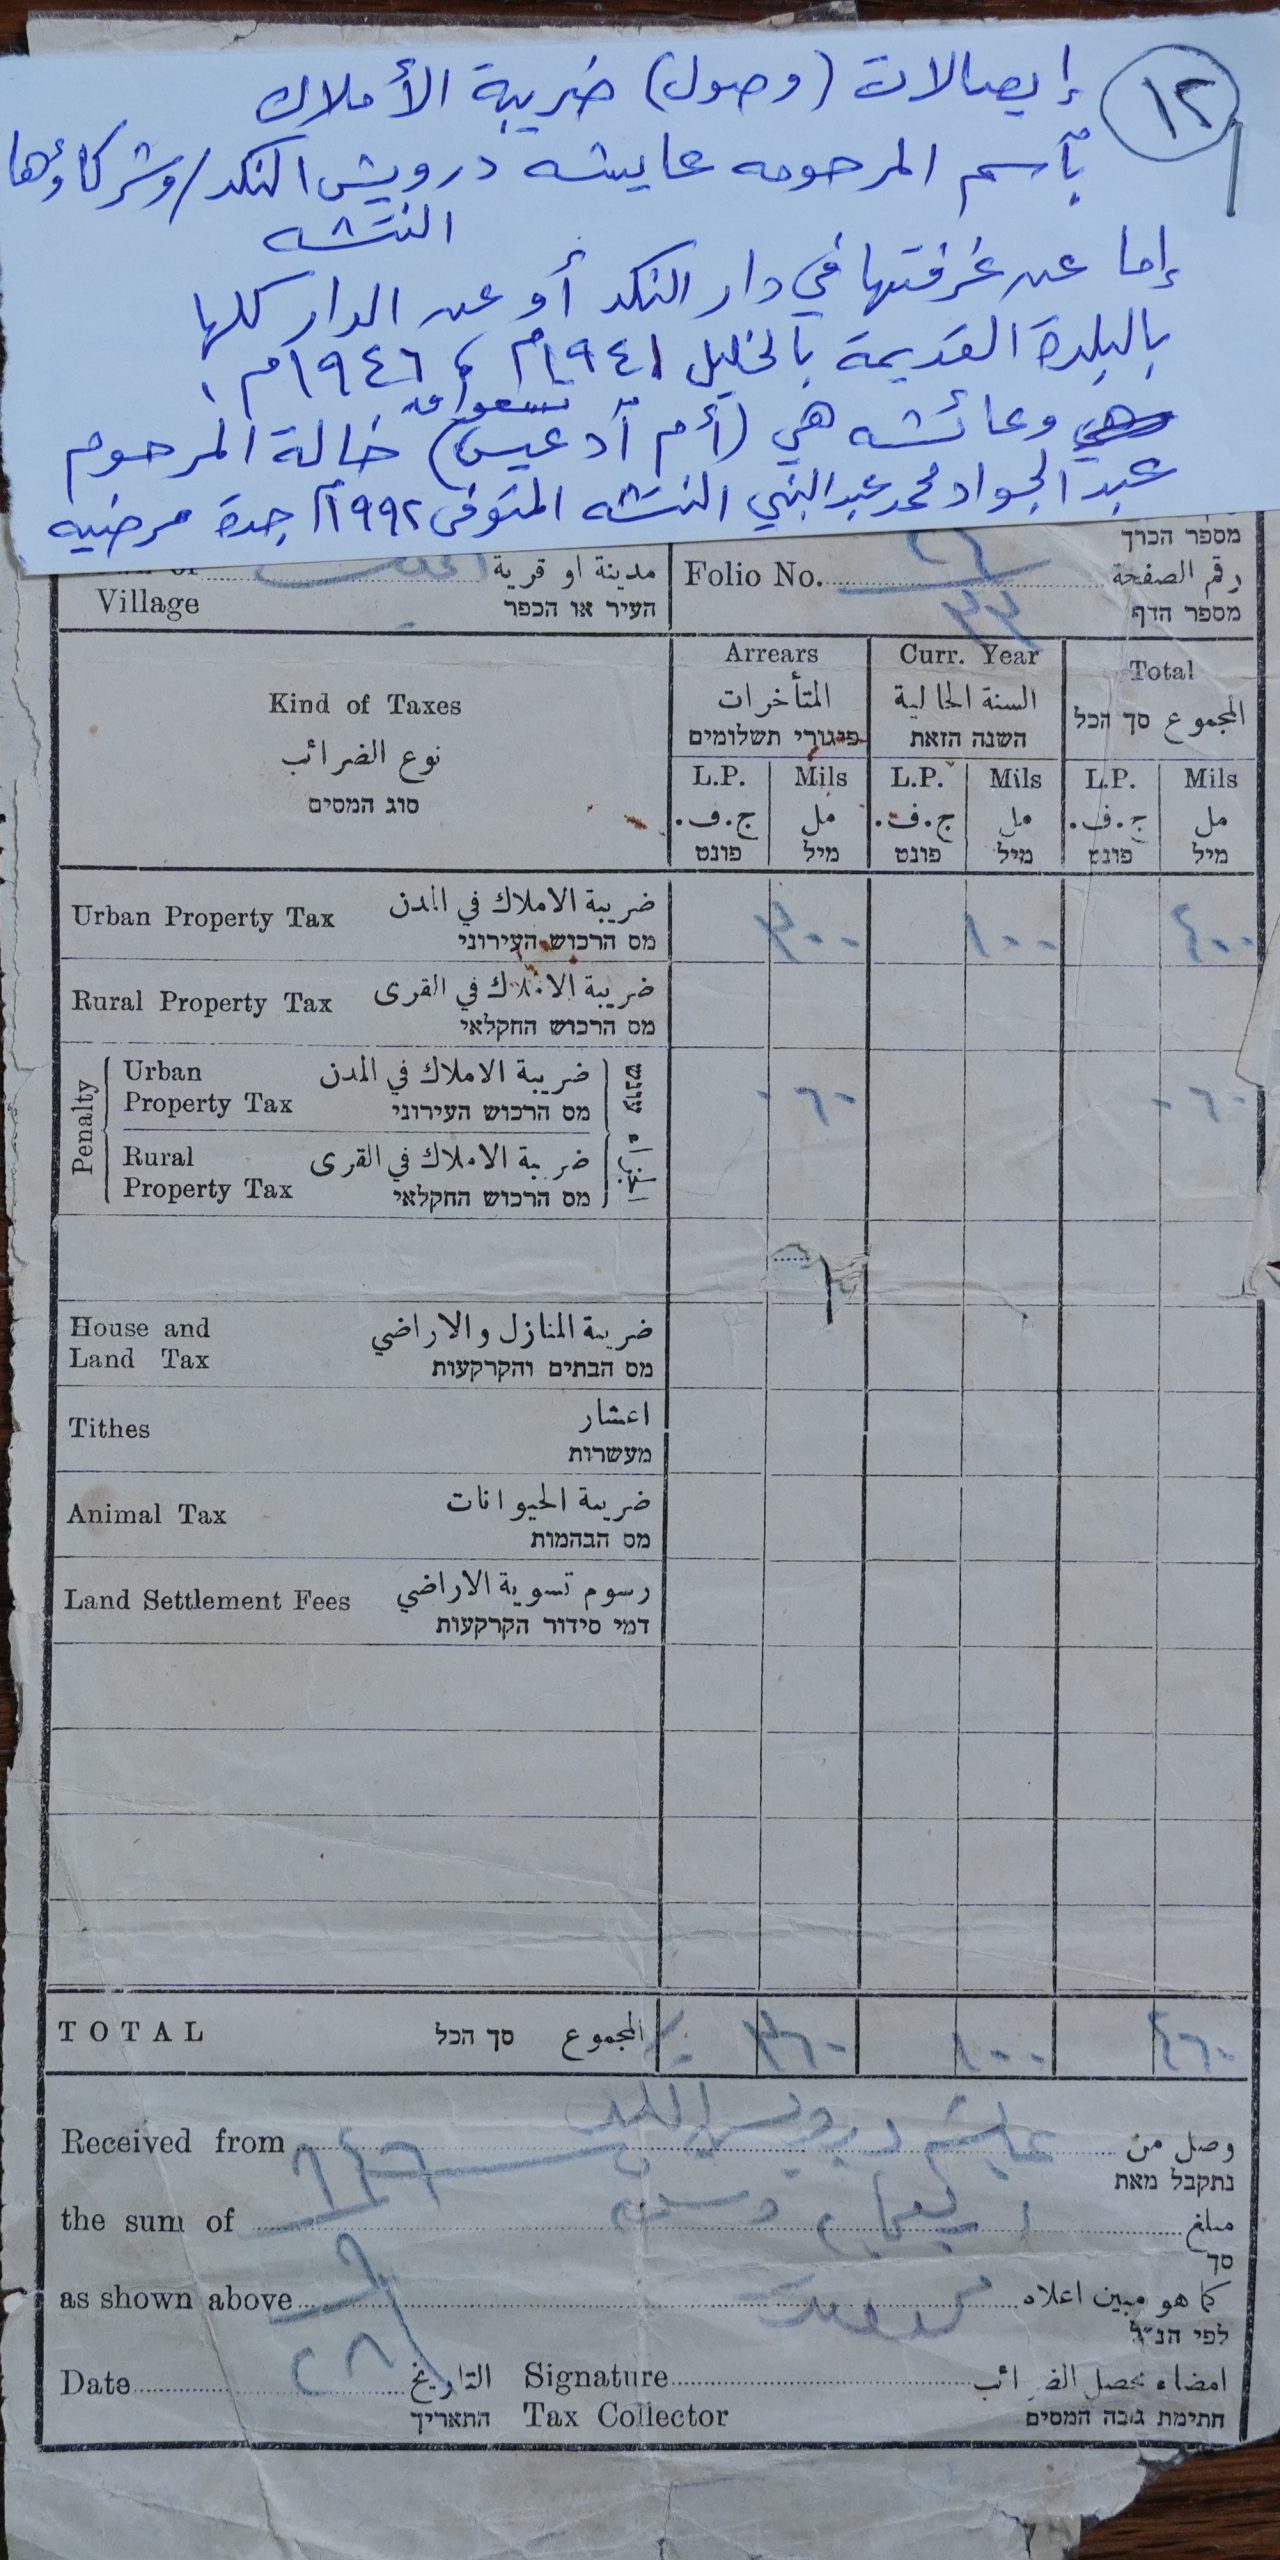 ١٢
إيصالات (وصول) ضريبة الأملاك
بأسم المرحومه عايشه درويش النكد/وشركاؤها
النتشه
إما عن غرفتها في دار النكد أو عن الدار كلها
بالبلدة القديمة بالخليل ١٩٤١م، ١٩٤٦م.
وعائشه هي (أم أدعيس) خالة المرحوم
عبد الجواد محمد عبد النبي النتشه المتوفى ١٩٩٢م جدة مرضيه
מספר הכרך
Village مدينة او قرية העיר או הכפר
Folio No. رقم الصفحة מספר הדף
٢٦
٣٣
Kind of Taxes
نوع الضرائب
סוג המסים
Arrears
المتأخرات
פיגורי תשלומים
Curr. Year
السنة الحالية
השנה הזאת
Total
المجموع סך הכל
L.P. Mils L.P. Mils L.P. Mils
ج.ف. مل ج.ف. مل ج.ف. مل
פונט מיל פונט מיל פונט מיל
Urban Property Tax ضريبة الاملاك في المدن ٣٠٠ ١٠٠ ٤٠٠
מס הרכוש העירוני
Rural Property Tax ضريبة الاملاك في القرى
מס הרכוש החקלאי
Penalty الجزاء עונש
Urban Property Tax ضريبة الاملاك في المدن ٠٦٠ ٠٦٠
מס הרכוש העירוני
Rural Property Tax ضريبة الاملاك في القرى
מס הרכוש החקלאי
House and Land Tax ضريبة المنازل والاراضي
מס הבתים והקרקעות
Tithes اعشار
מעשרות
Animal Tax ضريبة الحيوانات
מס הבהמות
Land Settlement Fees رسوم تسوية الاراضي
דמי סידור הקרקעות
TOTAL المجموع סך הכל ٣٦٠ ١٠٠ ٤٦٠
Received from عايشه درويش النكد وصل من
נתקבל מאת
the sum of مبلغ
סך
as shown above كما هو مبين اعلاه
לפי הנ"ל
Date التاريخ Signature امضاء محصل الضرائب
התאריך Tax Collector חתימת גובה המסים